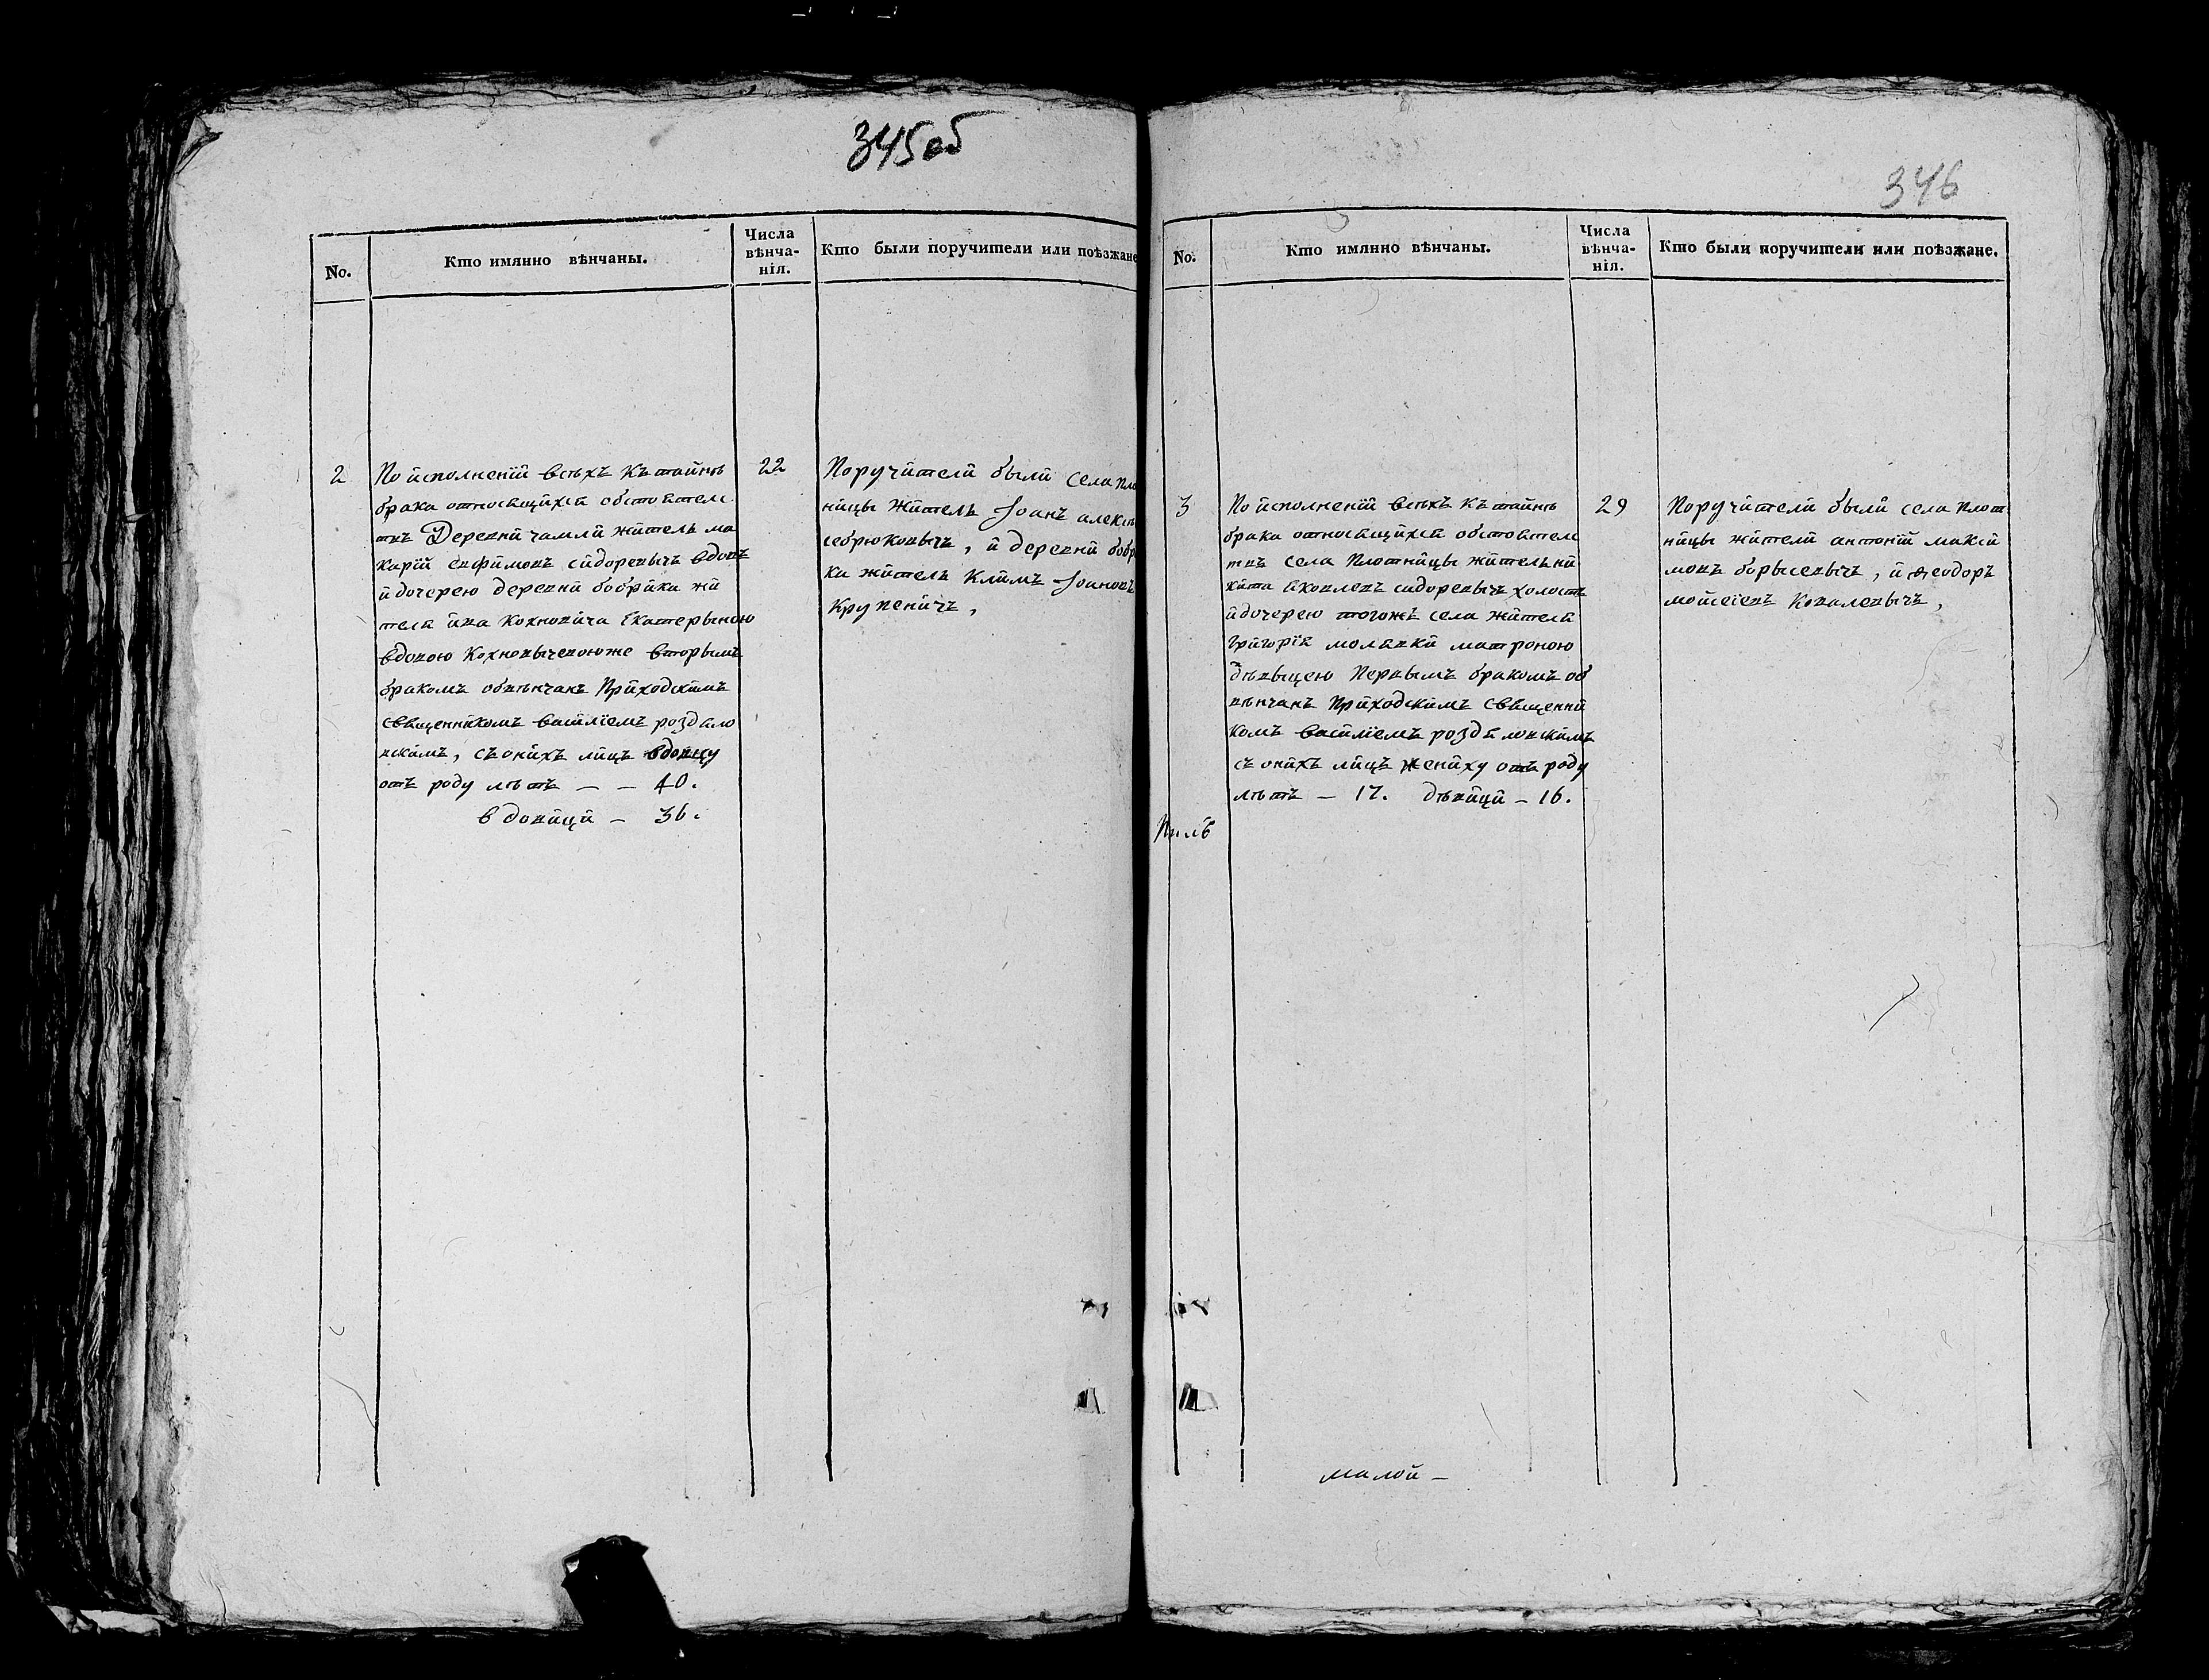 345 об
No.
Кто имянно вѣнчаны.
Числа
вѣнча-
нія.
Кто были поручители или поѣзжане
2
По исполненіи всѣхъ къ тайнѣ
брака относящихся обстоятелс
твъ Деревни чамли житель ма
карій евфимовъ сидоревычъ вдовъ
и дочерею деревни бобрика жи
теля ива кохновича Екатерыною
вдовою кохновычевоюже вторымъ
бракомъ обвѣнчанъ Приходскимъ
священникомъ василіемъ роздяло
вскимъ, съ онихъ лицъ вдовцу
отъ роду лѣтъ — — 40.
вдовици — 36.
22
Поручители были села пло
ницы житель Іоанъ алексѣ
себрюковычъ, и деревни бобр
ка житель Климъ Іоановъ
Крупеничъ,
346
No.
Кто имянно вѣнчаны.
Числа
вѣнча-
нія.
Кто были поручители или поѣзжане.
3
По исполненіи всѣхъ къ тайнѣ
брака относящихся обстоятелс
твъ села Плотницы житель ни
кита Яковлевъ сидоревычъ холостъ
и дочерею тогожъ села жителя
григорія молявки матроною
дѣвыцею Первымъ бракомъ об
вѣнчанъ Приходскимъ священни
комъ василіемъ роздяловскимъ
съ онихъ лицъ жениху отъ роду
лѣтъ — 17. дѣвици — 16.
29
Поручители были села плот
ницы жители антоній макси
мовъ борысевычъ, и ѳеодоръ
мойсеіевъ Ковалевычъ,
малой —